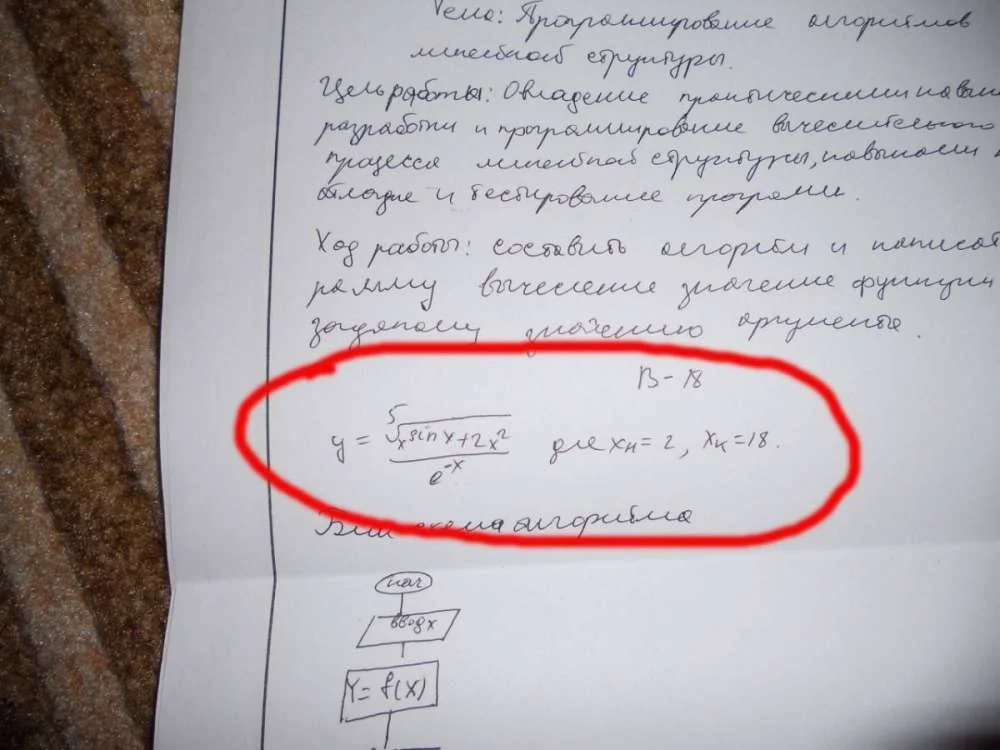 Тема: Программирование алгоритмов
линейной структуры.
Цель работы: Овладение практическими навы
разработки и программирование вычеслительного
процесса линейной структуры, навыками
отладке и тестирование программ.
Ход работы: составить алгоритм и написат
рамму вычесление значение функции
заданому значению аргумента.
В-18
y = ⁵√(x^sin x+2x²) / e^-x для xн=2, xк=18.
Блок схема алгоритма
нач
ввод x
Y= f(X)